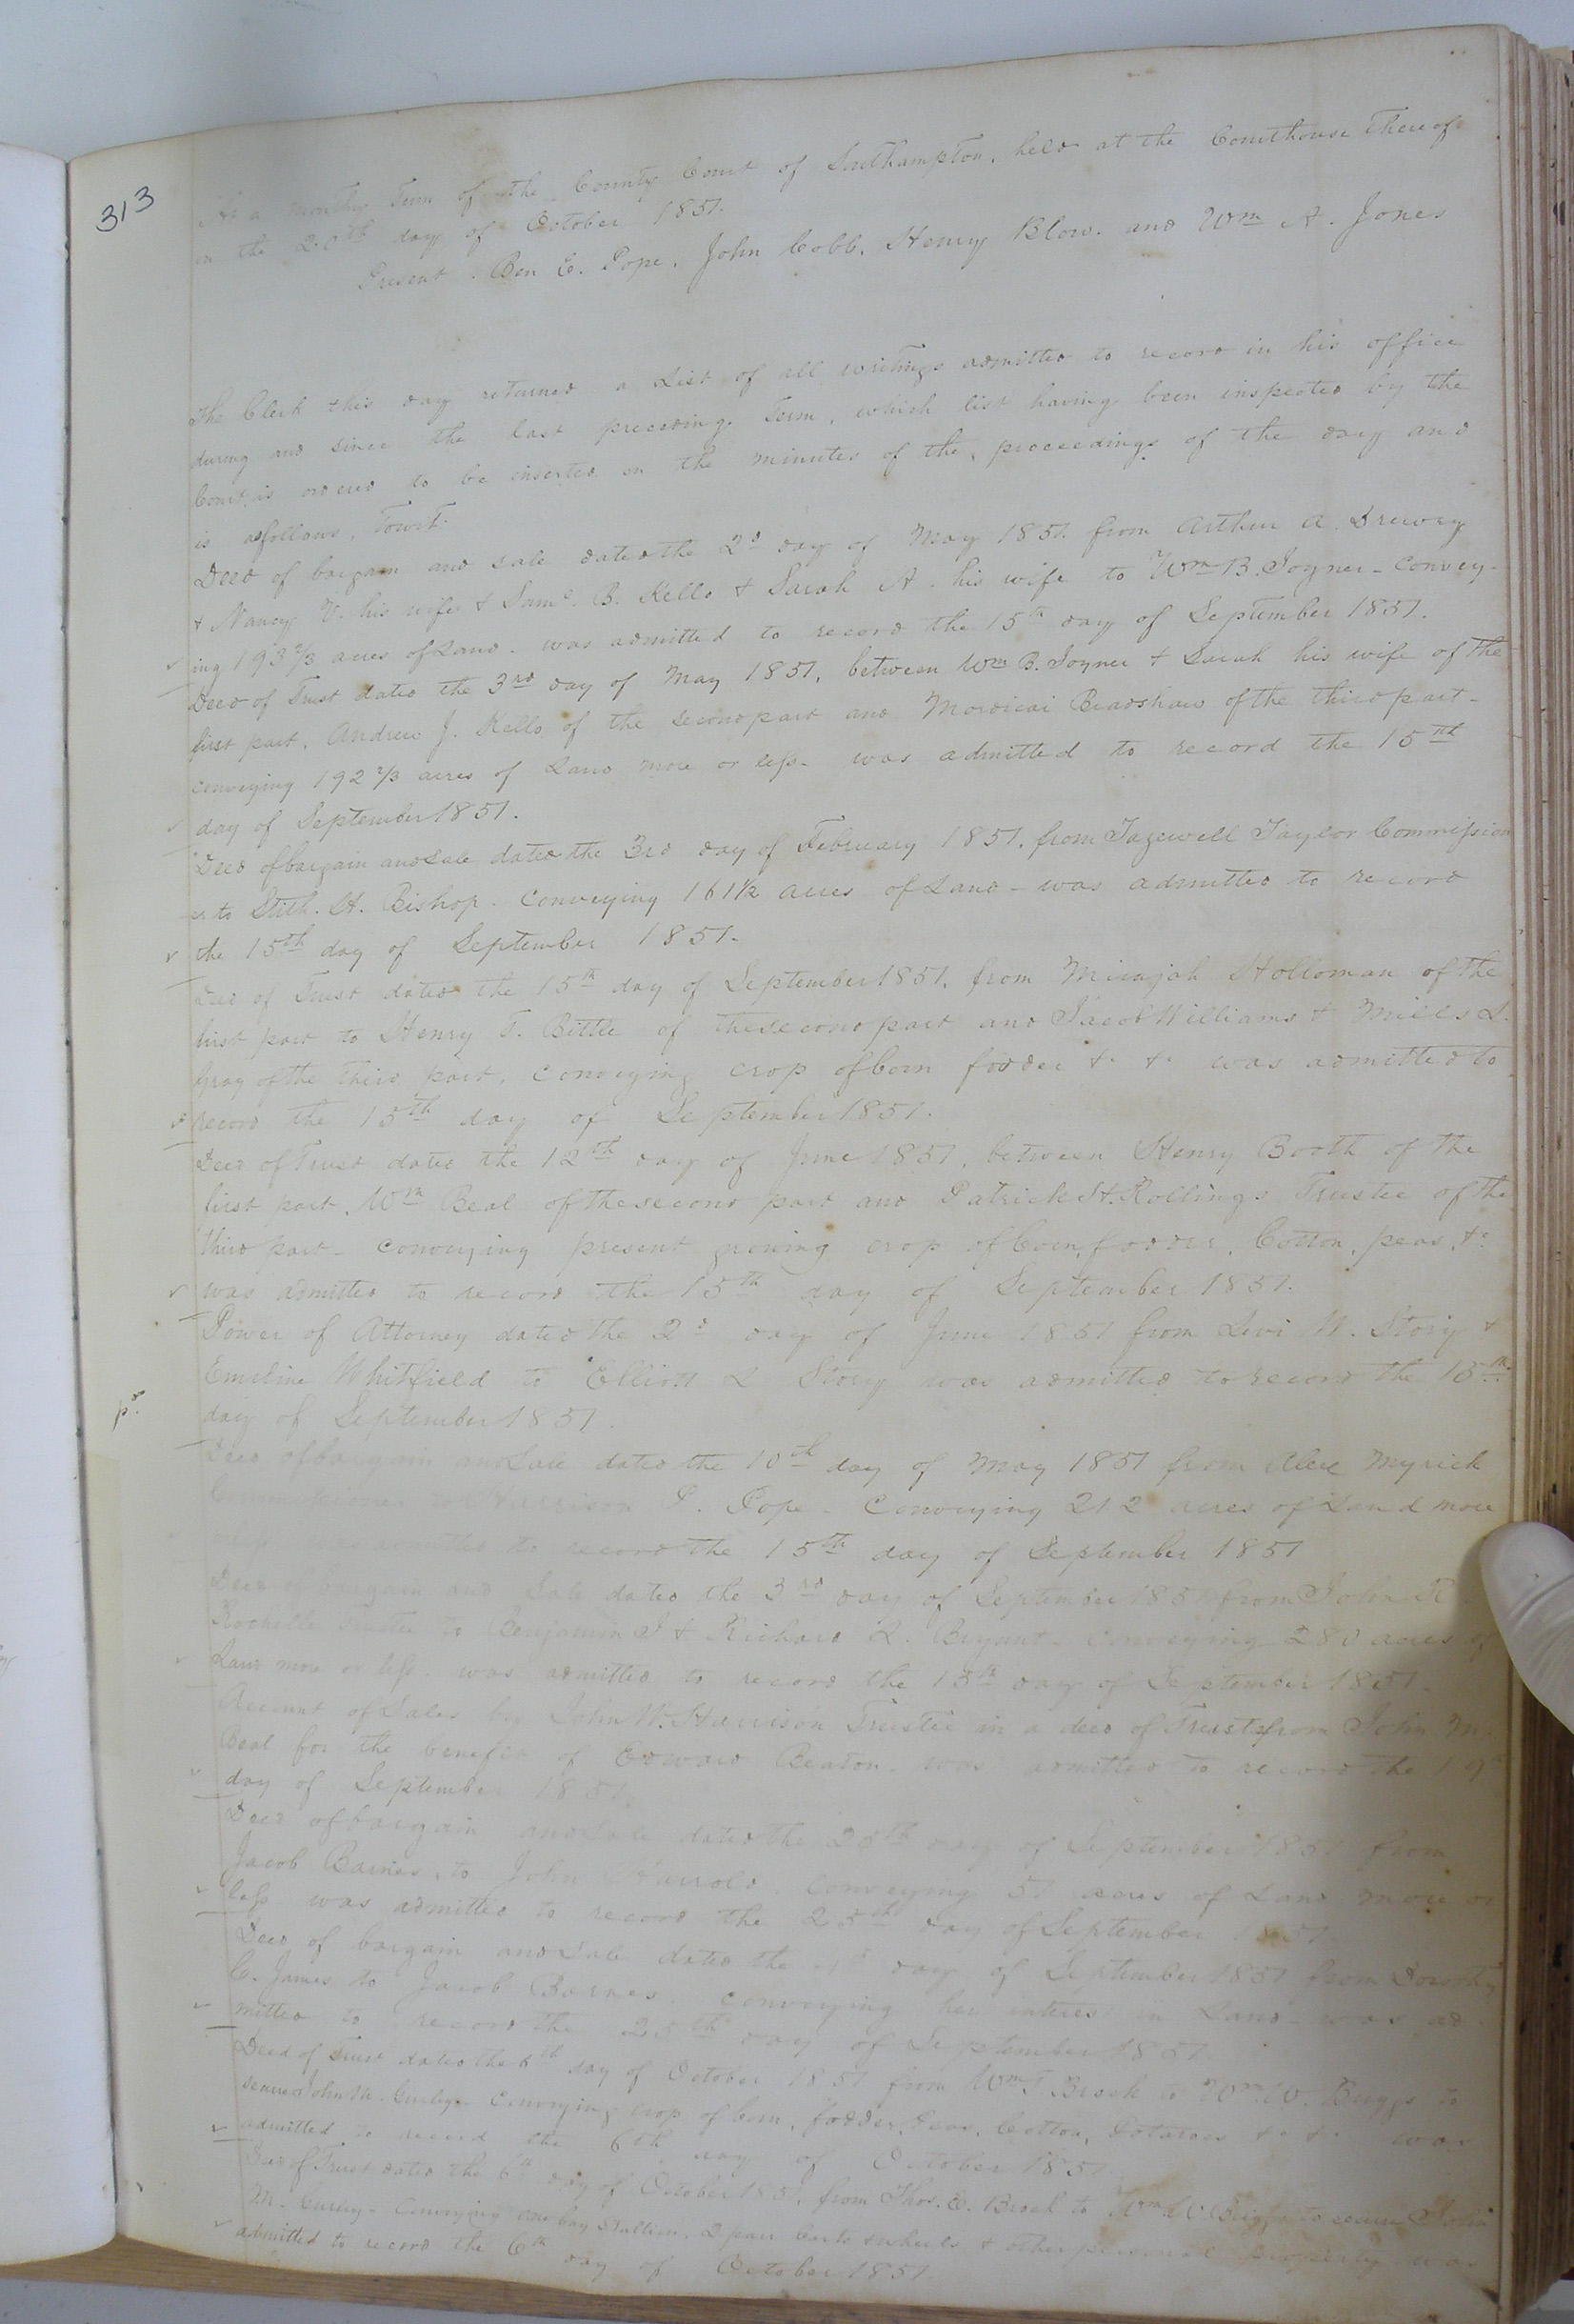 313
At a monthly Term of the County Court of Southampton, held at the Courthouse thereof
on the 20th day of October 1851.
Present. Ben E. Pope, John Cobb, Henry Blow. and Wm A. Jones
The Clerk this day returned a List of all writings admitted to record in his office
during and since the last preceeding Term, which list having been inspected by the
Court, is ordered to be inserted in the minutes of the proceedings of the day and
is as follows, Towit.
Deed of bargain and sale dated the 2d day of May 1851. from Arthur A. Drewry
& Nancy V. his wife & Saml. B. Kello & Sarah A. his wife to Wm B. Joyner - convey-
ing 193 2/3 acres of Land. was admitted to record the 15th day of September 1851.
Deed of Trust dated the 3rd day of May 1851, between Wm B. Joyner & Sarah his wife of the
first part, Andrew J. Kello of the second part and Mordicai Bradshaw of the third part -
conveying 192 2/3 acres of Land more or less - was admitted to record the 15th
day of September 1851.
Deed of bargain and sale dated the 3rd day of February 1851. from Tazewell Taylor Commission
er to Stith. H. Bishop. conveying 161 1/2 acres of Land - was admitted to record
the 15th day of September 1851.
Deed of Trust dated the 15th day of September 1851. from Micajah Holloman of the
first part to Henry T. Bittle of the second part and Jacob Williams & Mills L.
Gray of the third part, conveying crop of Corn fodder &c &c was admitted to
record the 15th day of September 1851.
Deed of Trust dated the 12th day of June 1851, between Henry Booth of the
first part, Wm Beal of the second part and Patrick H. Rollings Trustee of the
third part - conveying present growing crop of Corn, fodder, Cotton, peas, &c
was admitted to record the 15th day of September 1851.
Power of Attorney dated the 2d day of June 1851 from Levi W. Story &
Emeline Whitfield to Elliott L Story was admitted to record the 15th
day of September 1851.
Deed of bargain and Sale dated the 10th day of May 1851 from Alex Myrick
Commissioner to Harrison P. Pope - conveying 212 acres of Land more
or less was admitted to record the 15th day of September 1851
Deed of bargain and Sale dated the 3rd day of September 1851 from John R.
Rochelle Trustee to Benjamin J & Richard L. Bryant - conveying 280 acres of
Land more or less. was admitted to record the 15th day of September 1851.
Account of Sales by John W. Harrison Trustee in a deed of Trust from John M.
Beal for the benefit of Edward Beaton - was admitted to record the 19th
day of September 1851.
Deed of bargain and Sale dated the 25th day of September 1851 from
Jacob Barnes, to John Harrold. conveying 51 acres of Land more or
less was admitted to record the 25th day of September 1851.
Deed of bargain and Sale dated the day of September 1851 from Dorothy
C. James to Jacob Barnes. conveying her interest in Land - was ad-
mitted to record the 25th day of September 1851.
Deed of Trust dated the 6th day of October 1851 from Wm T. Brock to Wm W. Briggs to
secure John M. Gurley - conveying crop of Corn, fodder, Peas, Cotton, Potatoes &c &c was
admitted to record the 6th day of October 1851.
Deed of Trust dated the 6th day of October 1851. from Thos. E. Brock to Wm W Briggs to secure John
M. Gurley - Conveying one bay Stallion, 2 pair Carts & wheels, & other personal property was
admitted to record the 6th day of October 1851.